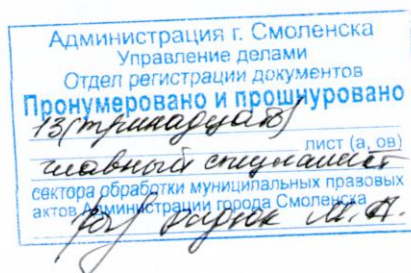 Администрация г. Смоленска
Управление делами
Отдел регистрации документов
Пронумеровано и прошнуровано
13 (тринадцать)
лист (а, ов)
главный специалист
сектора обработки муниципальных правовых
актов Администрации города Смоленска
М.А.